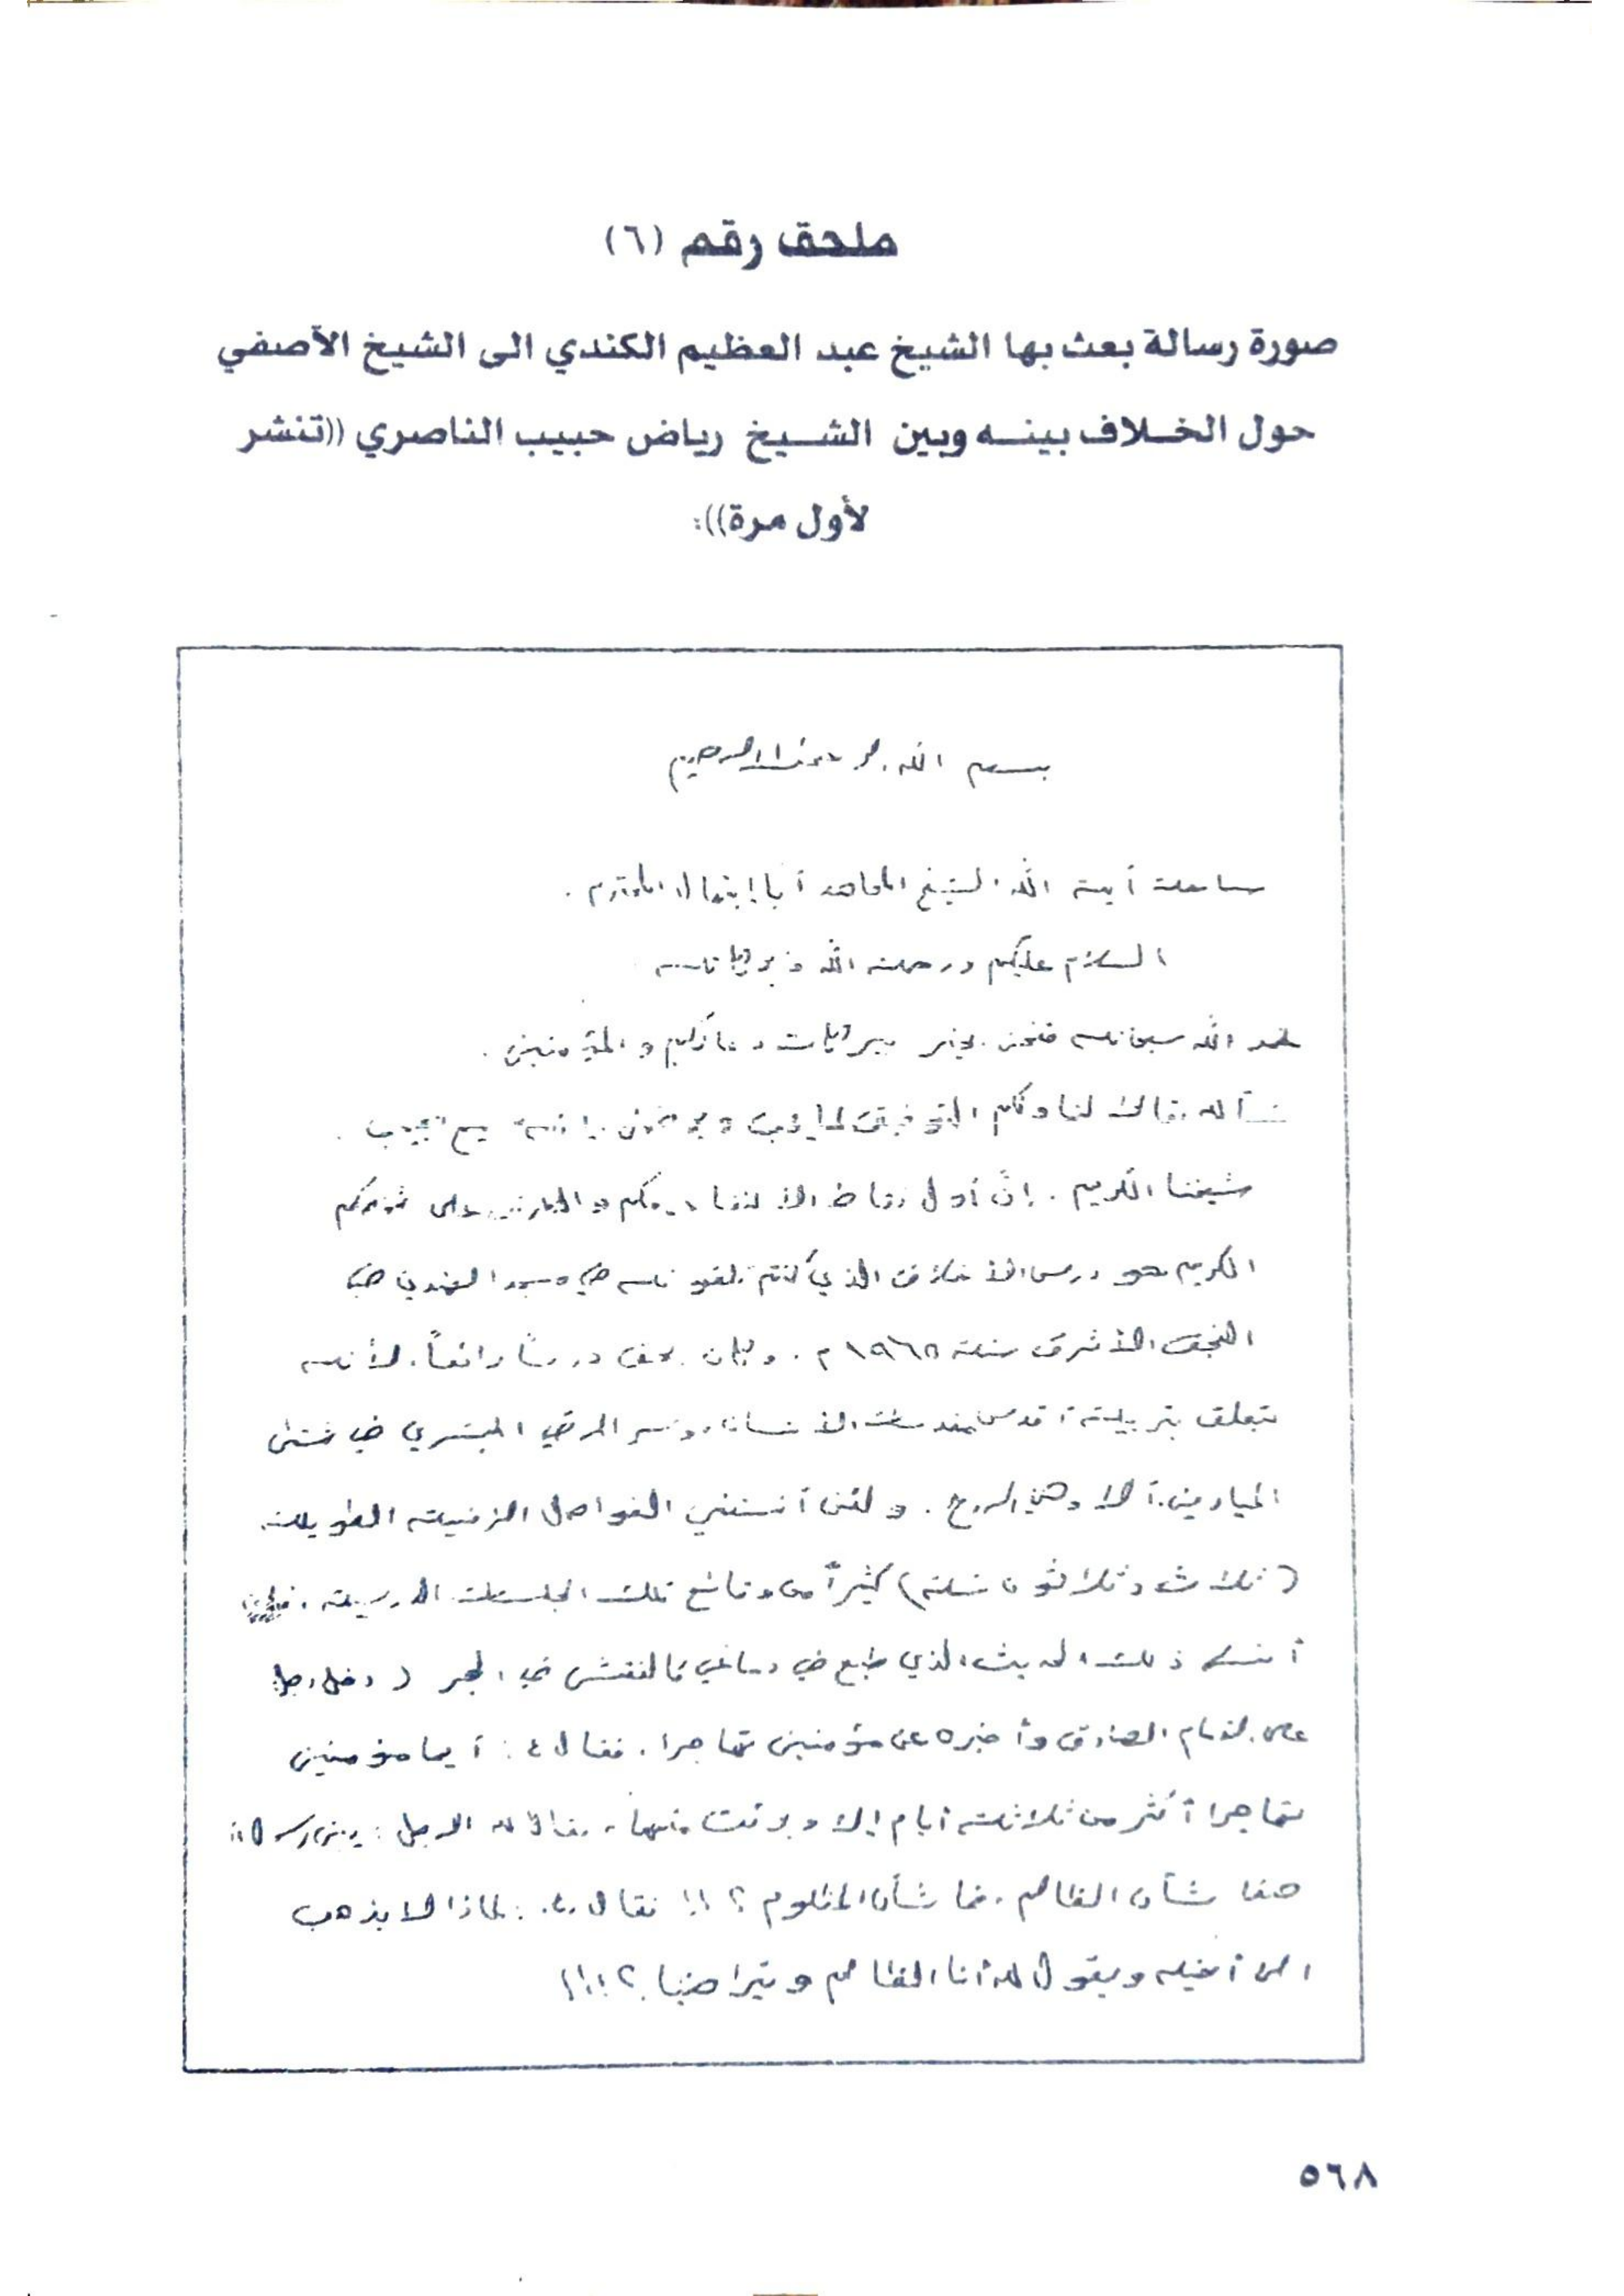 ملحق رقم (٦)
صورة رسالة بعث بها الشيخ عبد العظيم الكندي الى الشيخ الآصفي
حول الخلاف بينه وبين الشيخ رياض حبيب الناصري ((تنشر
لأول مرة)):
بسم الله الرحمن الرحيم
سماحة آية الله الشيخ المجاهد أبا ابتهال المحترم .
السلام عليكم ورحمة الله وبركاته
نحمد الله سبحانه فنحن بخير ببركات دعائكم والمؤمنين .
نسأله تعالى لنا ولكم التوفيق لما يحب ويرضى إنه سميع مجيب .
شيخنا الكريم . إنّ أول نقاط الالتقاء بكم والتعارف على شخصكم
الكريم هو درس الأخلاق الذي كنتم تلقونه في مسجد الهندي في
النجف الأشرف سنة ١٩٦٨م . وكان بحق درساً رائعاً لأنه
يتعلق بتربية أقدس مقدسات الإنسان وسر الرقي البشري في شتى
الميادين ألا وهي الروح . ولئن أنستني الفواصل الزمنية الطويلة
(ثلاث وثلاثون سنة) كثيراً من وقائع تلك الجلسات الدرسية ، فلن
أنسى ذلك الحديث الذي طبع في دماغي كالنقش في الحجر ( دخل رجل
على الإمام الصادق وأخبره عن مؤمنين تهاجرا . فقال ع : أيما مؤمنين
تهاجرا أكثر من ثلاثة أيام إلا وبرئت منهما ، فقال له الرجل : يا بن رسول الله
هذا شأن الظالم . فما شأن المظلوم ؟!! فقال ع : لماذا لا يذهب
الى أخيه ويقول له أنا الظالم ويتراضيا ؟!!!
٥٦٨